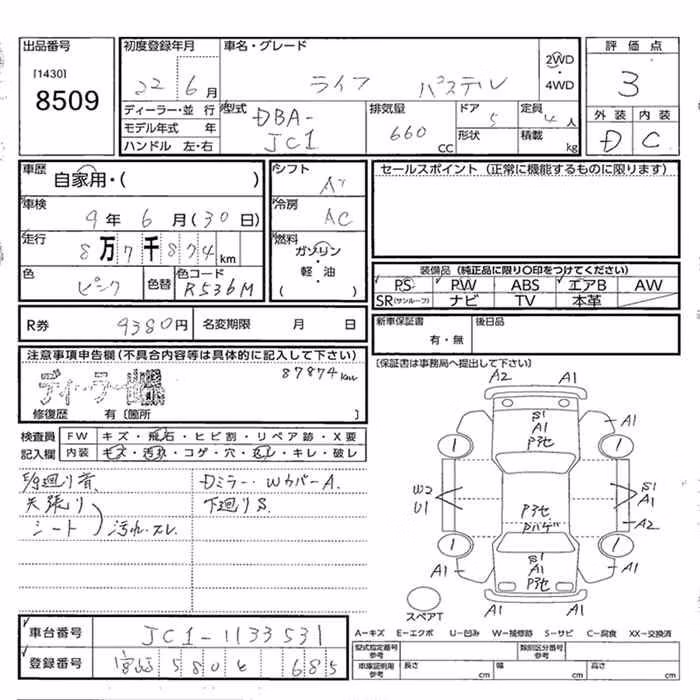 出品番号
[1430]
8509
初度登録年月
22 6月
車名・グレード
ライフ パステル
2WD
・
4WD
評価点
3
外装 内装
D C
ディーラー・並行
モデル年式 年
ハンドル 左・右
型式
DBA-
JC1
排気量
660
CC
ドア
5
形状
定員
4人
積載 kg
車歴
自家用・( )
車検
9年 6月(30日)
走行
8万7千874km
色
ピンク
色替
色コード
R536M
シフト
AT
冷房
AC
燃料
ガソリン
・
軽・油
( )
セールスポイント (正常に機能するものに限ります)
装備品 (純正品に限り〇印をつけてください)
PS PW ABS エアB AW
SR(サンルーフ) ナビ TV 本革
R券 9380円 名変期限 月 日
新車保証書
有・無
後日品
[保証書は事務局へ提出して下さい]
注意事項申告欄 (不具合内容等は具体的に記入して下さい)
87874km
修復歴 有 [箇所 ]
検査員 FW キズ・飛石・ヒビ割・リペア跡・X要
記入欄 内装 キズ・汚れ・コゲ・穴・スレ・キレ・破レ
天張り
シート
汚れ・スレ
Dミラー・WカバーA.
下廻りS.
A2 A1
S1
A1
P他
A1
W2
U1
S1
A1
A2
P他
Pハゲ
A1
S1
A1
P他
A1
スペアT
車台番号 JC1-1133531
登録番号 宮崎 580 685
A-キズ E-エクボ U-凹み W-補修跡 S-サビ C-腐食 XX-交換済
型式指定番号
参考
類別区分番号
参考
車庫証明用
参考
長さ cm
幅 cm
高さ cm